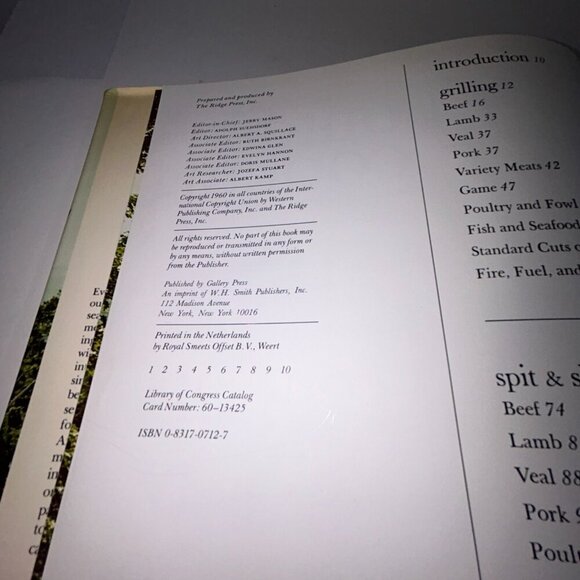 Prepared and produced by
The Ridge Press, Inc.
Editor-in-Chief: JERRY MASON
Editor: ADOLPH SUEHSDORF
Art Director: ALBERT A. SQUILLACE
Associate Editor: RUTH BIRNKRANT
Associate Editor: EDWINA GLEN
Associate Editor: EVELYN HANNON
Associate Editor: DORIS MULLANE
Art Researcher: JOZEFA STUART
Art Associate: ALBERT KAMP
Copyright 1960 in all countries of the Inter-
national Copyright Union by Western
Publishing Company, Inc. and The Ridge
Press, Inc.
All rights reserved. No part of this book may
be reproduced or transmitted in any form or
by any means, without written permission
from the Publisher.
Published by Gallery Press
An imprint of W.H. Smith Publishers, Inc.
112 Madison Avenue
New York, New York 10016
Printed in the Netherlands
by Royal Smeets Offset B.V., Weert
1 2 3 4 5 6 7 8 9 10
Library of Congress Catalog
Card Number: 60-13425
ISBN 0-8317-0712-7
introduction 10
grilling 12
Beef 16
Lamb 33
Veal 37
Pork 37
Variety Meats 42
Game 47
Poultry and Fowl
Fish and Seafood
Standard Cuts o
Fire, Fuel, and
spit & s
Beef 74
Lamb 8
Veal 88
Pork
Poul